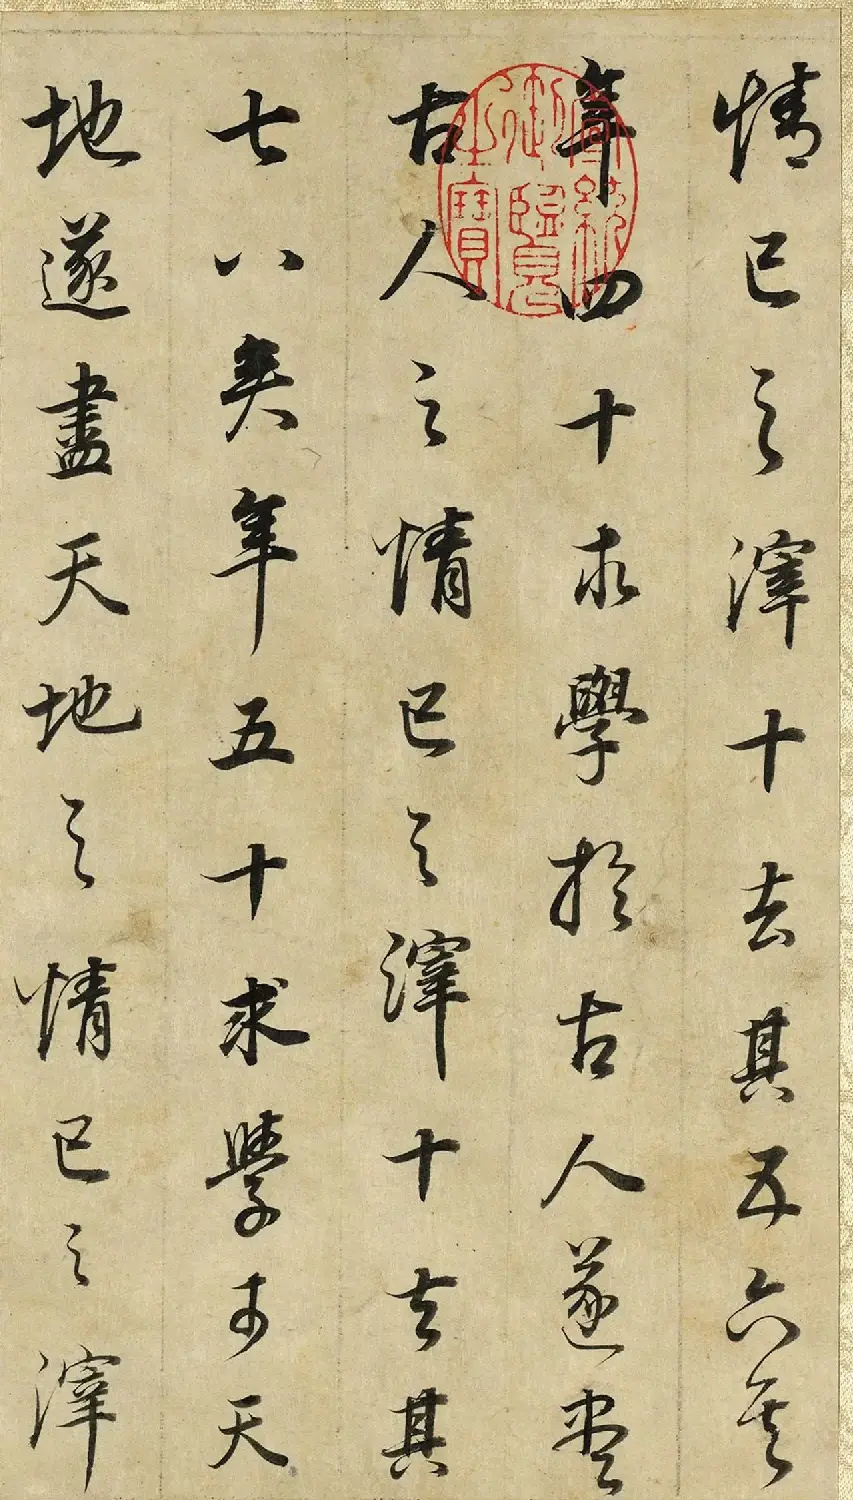 情己之滓十去其五六矣
年四十求學於古人遂盡
古人之情己之滓十去其
七八矣年五十求學于天
地遂盡天地之情己之滓
宣統
御覽
之寶